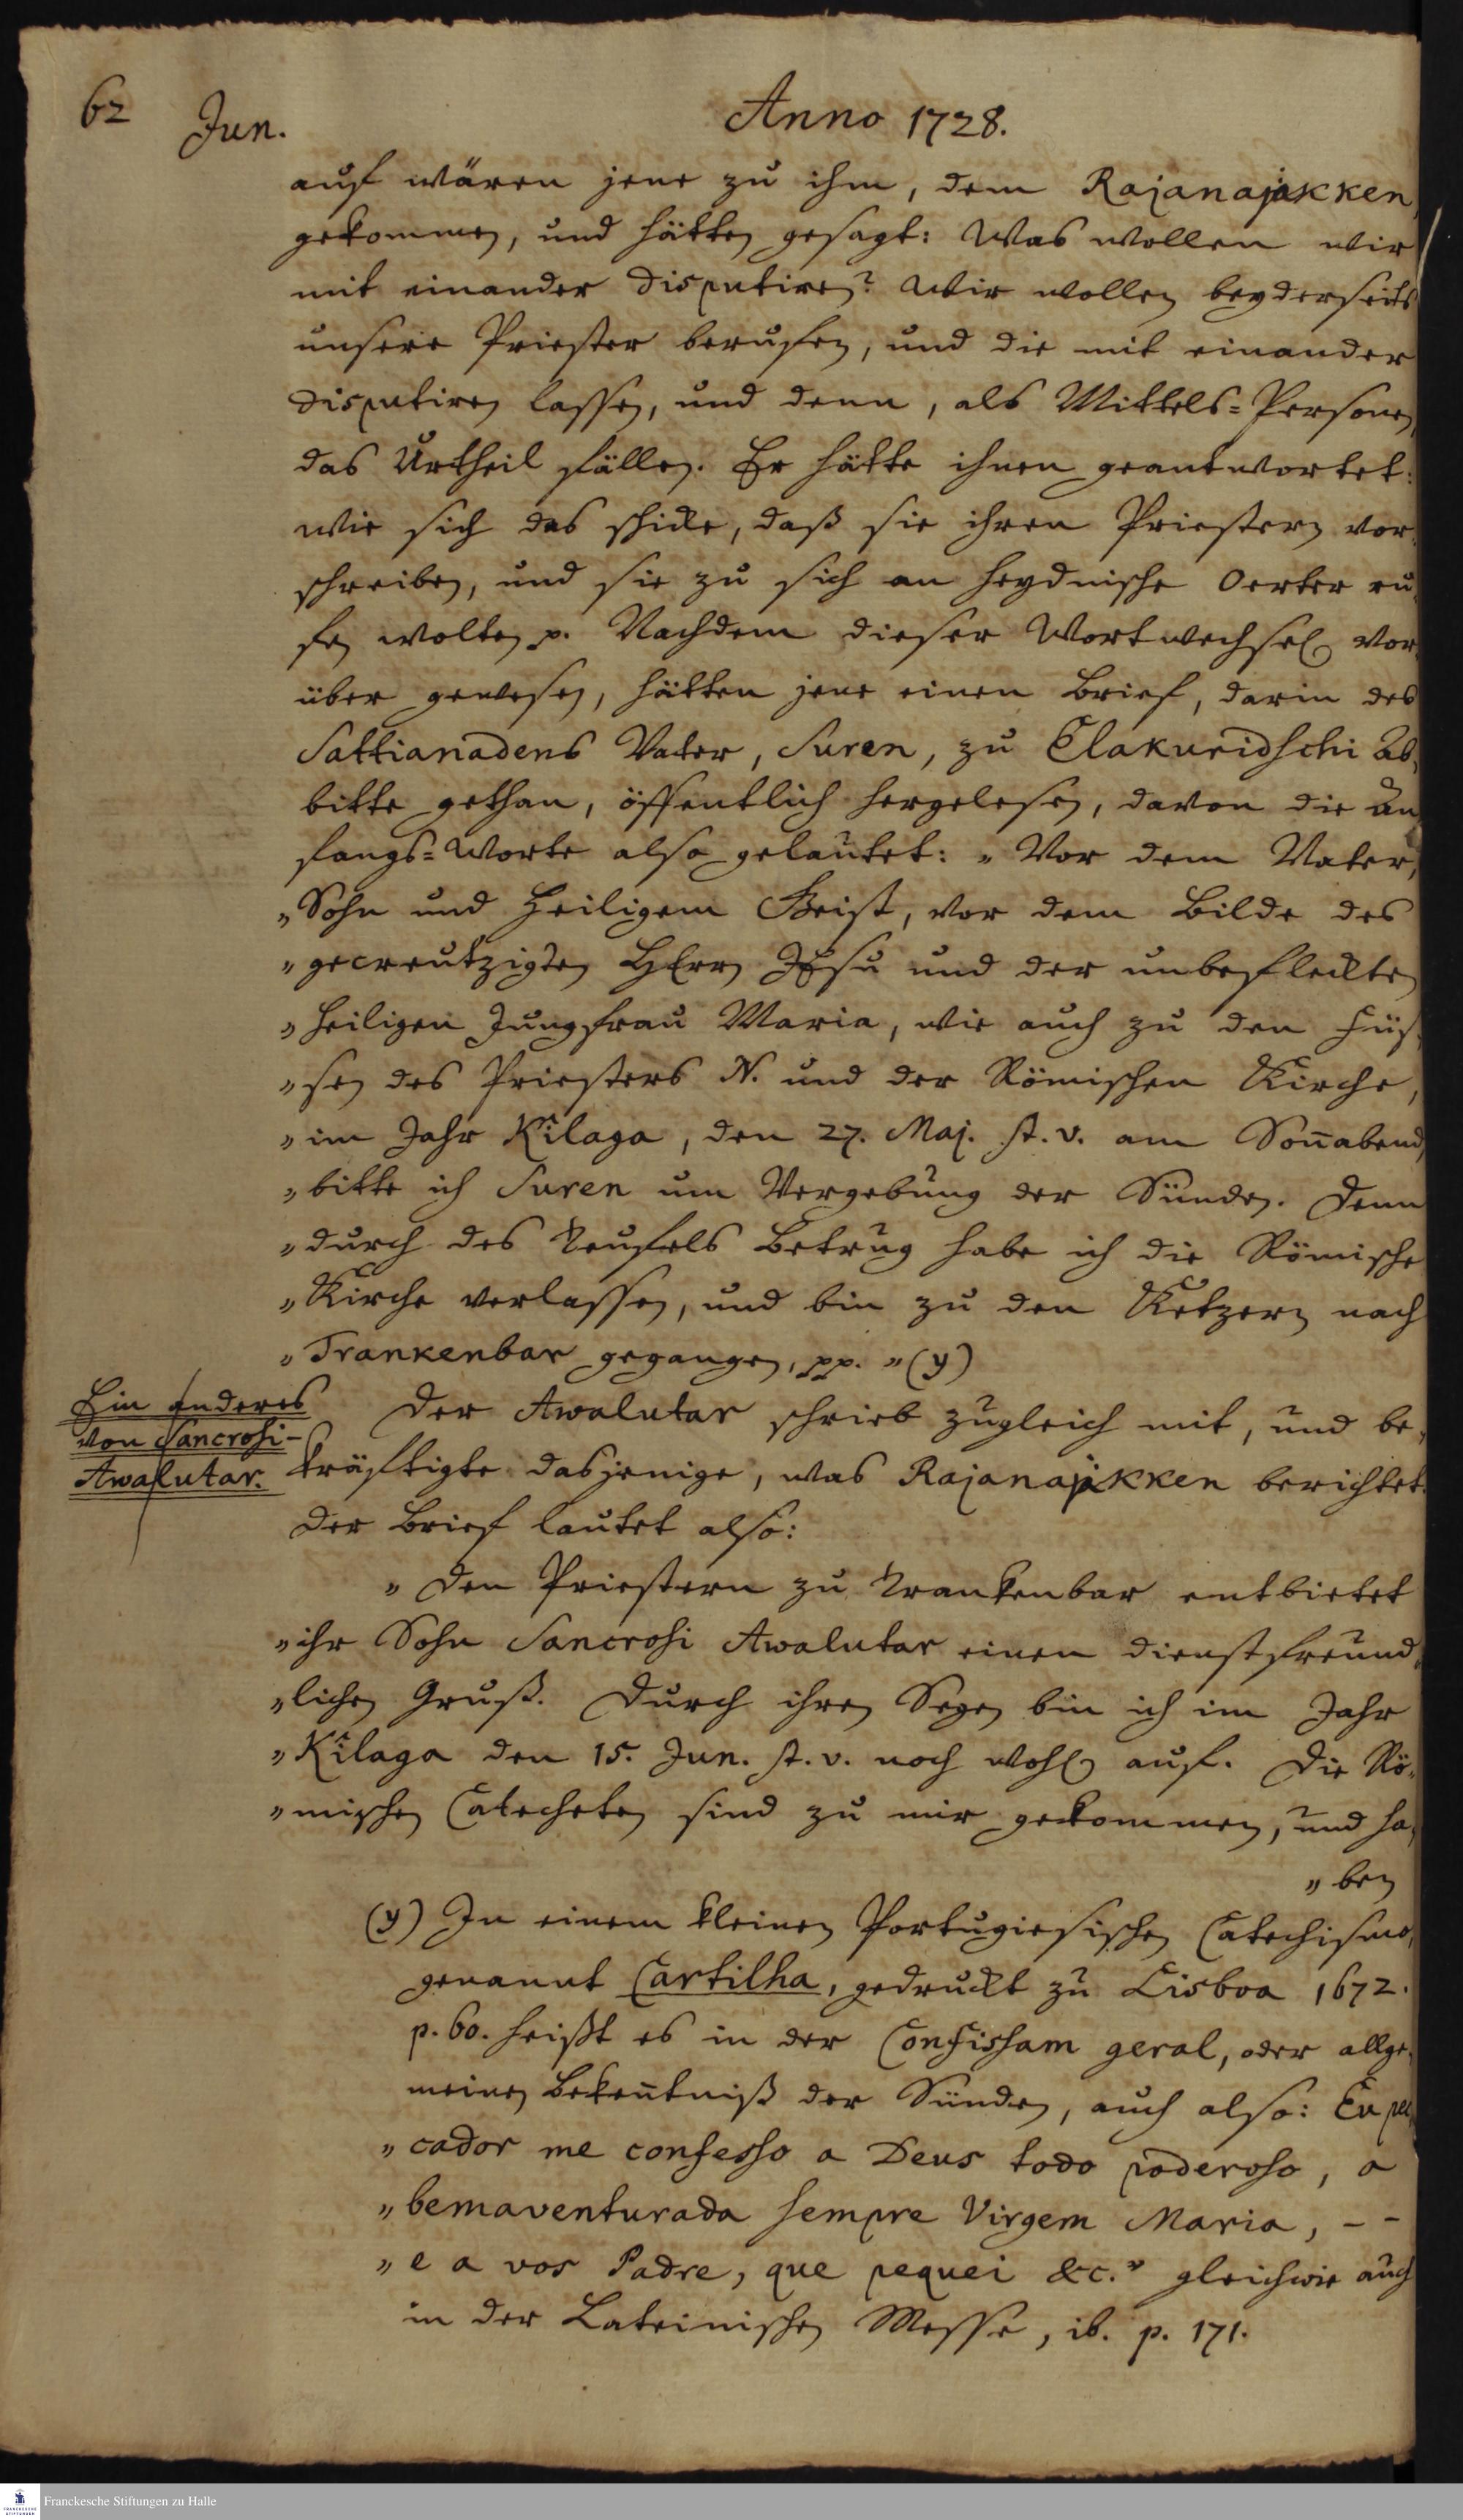 62 Jun. Anno 1728.
auf wären jene zu ihm, dem Rajanajakken
gekommen, und hätten gesagt: Was wollen wir
mit einander disputiren? Wir wollen beyderseits
unsere Priester beruffen, und die mit einander
disputiren lassen, und denn, als Mittels-Personen,
das Urtheil fällen. Er hätte ihnen geantwortet:
wie sich das schicke, daß sie ihren Priestern vor-
schreiben, und sie zu sich an heydnische Oerter ru-
fen wolten p. Nachdem dieser Wortwechsel vor-
über gewesen, hätten jene einen Brief, darin des
Sattianadens Vater, Suren, zu Elakuridschi Ab-
bitte gethan, öffentlich hergelesen, davon die An-
fangs-Worte also gelautet: „Vor dem Vater,
„Sohn und Heiligem Geist, vor dem Bilde des
„gecreutzigten HErrn JEsu und der unbefleckten
„heiligen Jungfrau Maria, wie auch zu den Füs-
„sen des Priesters N. und der Römischen Kirche,
„im Jahr Kilaga, den 27. Maj. st. v. am Soñabend,
„bitte ich Suren um Vergebung der Sünden. Denn
„durch des Teufels Betrug habe ich die Römische
„Kirche verlassen, und bin zu den Ketzern nach
„Trankenbar gegangen, pp. „(y)
Ein anderes
von Sancrosi-
Awalutar.
Der Awalutar schrieb zugleich mit, und be-
kräftigte dasjenige, was Rajanajakken berichtet.
Der Brief lautet also:
„Den Priestern zu Trankenbar entbietet
„ihr Sohn Sancrosi Awalutar einen dienstfreund-
„lichen Gruß. Durch ihren Segen bin ich im Jahr
„Kilaga den 15. Jun. st. v. noch wohl auf. Die Rö-
„mischen Catecheten sind zu mir gekommen, und ha-
„ben
(y) In einem kleinen Portugiesischen Catechismo,
genannt Cartilha, gedruckt zu Lisboa 1672.
p. 60. heißt es in der Confissam geral, oder allge-
meinen Bekeñtniß der Sünden, auch also: Eu pec-
„cador me confesso a Deus todo poderoso, a
„bemaventurada sempre Virgem Maria, - -
„e a vos Padre, que pequei &c.„ gleichwie auch
in der Lateinischen Messe, ib. p. 171.
FRANCKESCHE STIFTUNGEN
Franckesche Stiftungen zu Halle